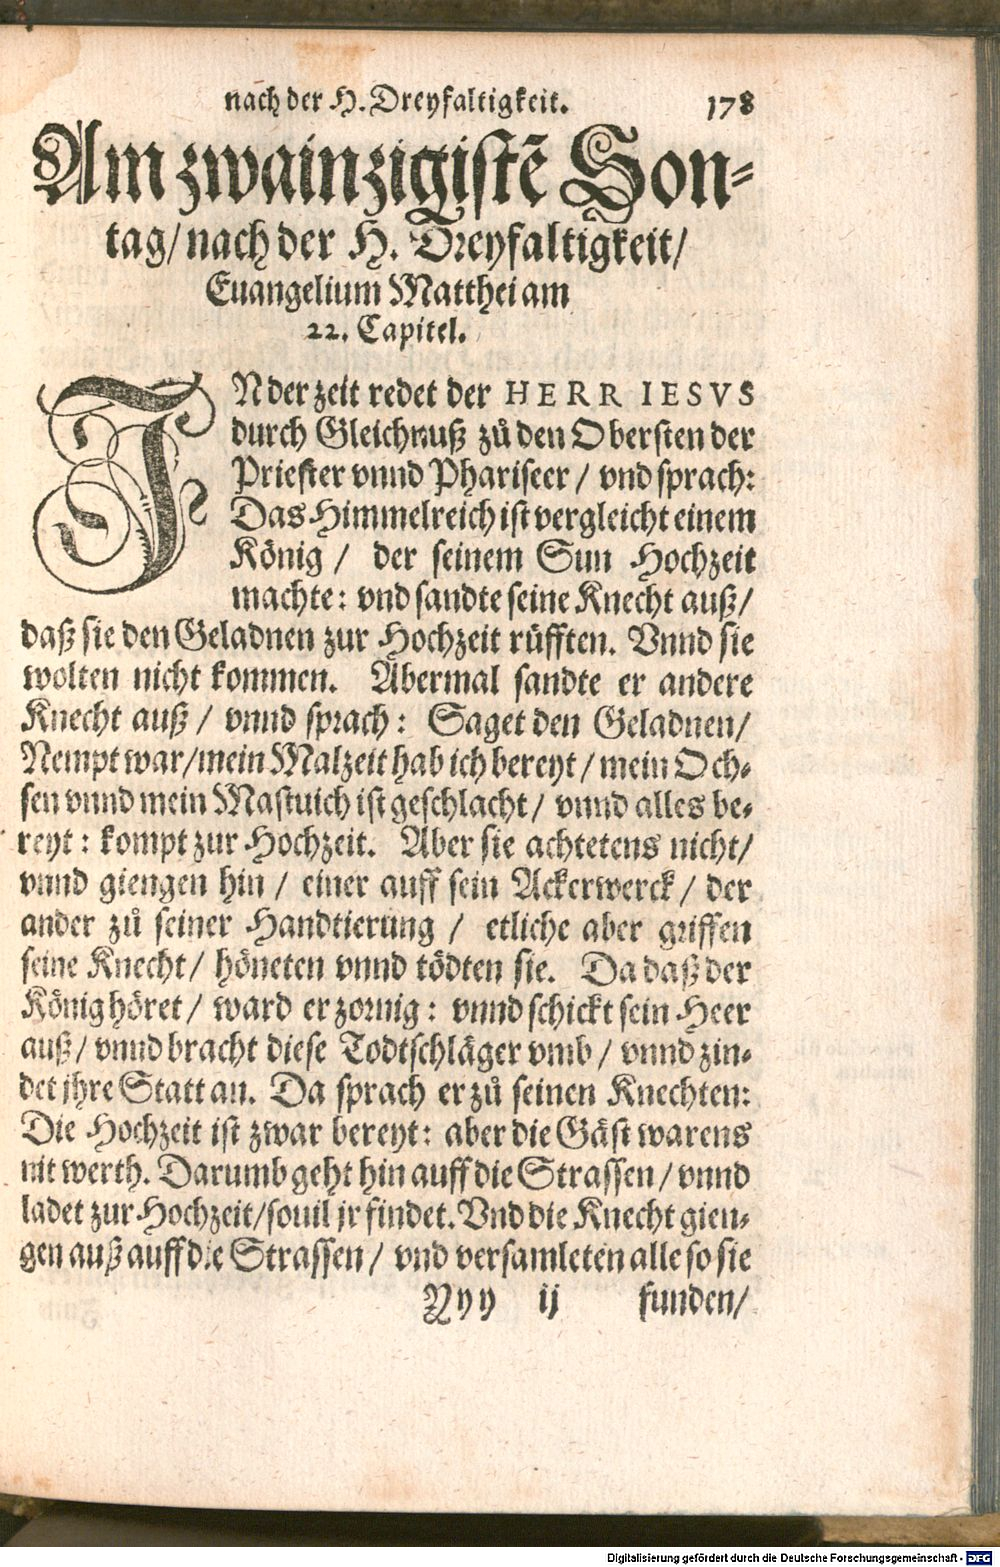 nach der H. Dreyfaltigkeit. 178
Am zwainzigistẽ Son-
tag/ nach der H. Dreyfaltigkeit/
Euangelium Matthei am
22. Capitel.
IN der zeit redet der HERR IESVS
durch Gleichnuß zů den Obersten der
Priester vnnd Phariseer / vnd sprach:
Das Himmelreich ist vergleicht einem
König / der seinem Sun Hochzeit
machte: vnd sandte seine Knecht auß/
daß sie den Geladnen zur Hochzeit rüfften. Vnnd sie
wolten nicht kommen. Abermal sandte er andere
Knecht auß / vnnd sprach: Saget den Geladnen/
Nempt war/mein Malzeit hab ich bereyt / mein Och-
sen vnnd mein Mastuich ist geschlacht / vnnd alles be-
reyt: kompt zur Hochzeit. Aber sie achtetens nicht/
vnnd giengen hin / einer auff sein Ackerwerck / der
ander zů seiner Handtierung / etliche aber griffen
seine Knecht / höneten vnnd tödten sie. Da daß der
König höret / ward er zornig: vnnd schickt sein Heer
auß / vnnd bracht diese Todtschläger vmb / vnnd zin-
det jhre Statt an. Da sprach er zů seinen Knechten:
Die Hochzeit ist zwar bereyt: aber die Gäst warens
nit werth. Darumb geht hin auff die Strassen / vnnd
ladet zur Hochzeit/souil jr findet. Vnd die Knecht gien-
gen auß auff die Strassen / vnd versamleten alle so sie
Yyy ij funden/
Digitalisierung gefördert durch die Deutsche Forschungsgemeinschaft - DFG